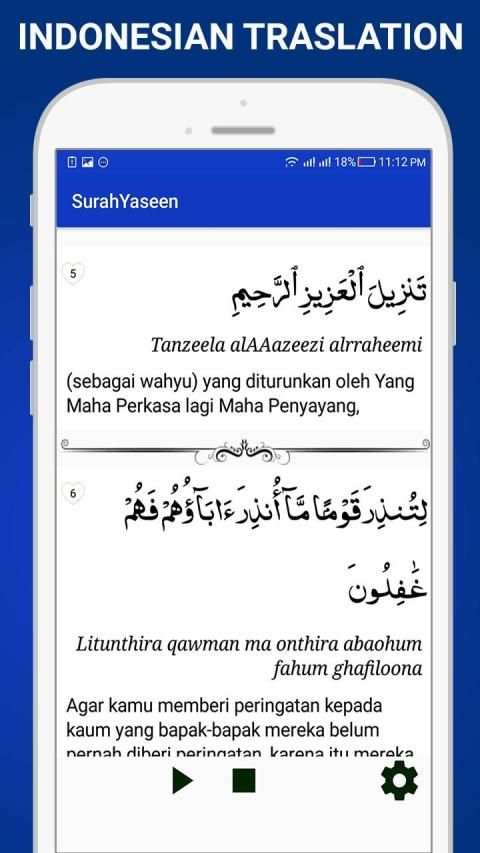 INDONESIAN TRASLATION
18% 11:12 PM
SurahYaseen
5
تَنزِيلَ ٱلْعَزِيزِ ٱلرَّحِيمِ
Tanzeela alAAazeezi alrraheemi
(sebagai wahyu) yang diturunkan oleh Yang
Maha Perkasa lagi Maha Penyayang,
6
لِتُنذِرَ قَوْمًا مَّآ أُنذِرَ ءَابَآؤُهُمْ فَهُمْ
غَٰفِلُونَ
Litunthira qawman ma onthira abaohum
fahum ghafiloona
Agar kamu memberi peringatan kepada
kaum yang bapak-bapak mereka belum
pernah diberi peringatan, karena itu mereka